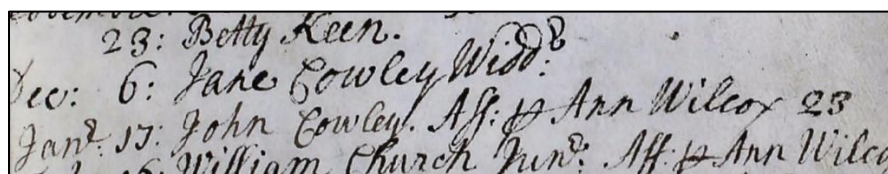 23: Betty Keen.
Dec: 6: Jane Cowley Widdʷ:
Janʳ: 17: John Cowley. Aff: ꝑ Ann Wilcox 23
16: William Church Junʳ: Aff: ꝑ Ann Wilco